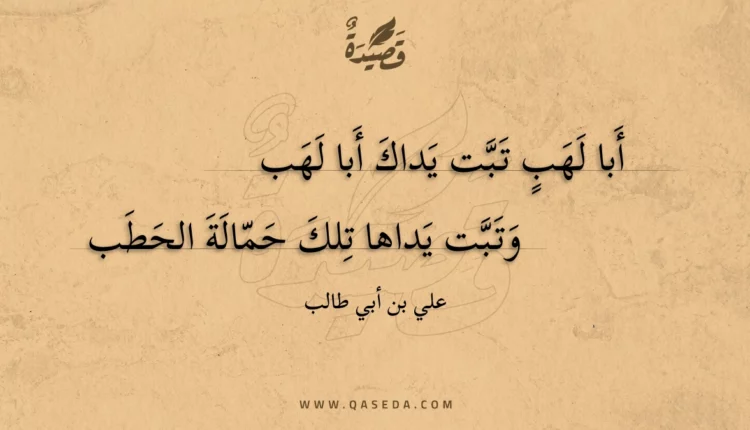 قَصِيْدَةٌ
أَبا لَهَبٍ تَبَّت يَداكَ أَبا لَهَب
وَتَبَّت يَداها تِلكَ حَمّالَةَ الحَطَب
علي بن أبي طالب
WWW.QASEDA.COM